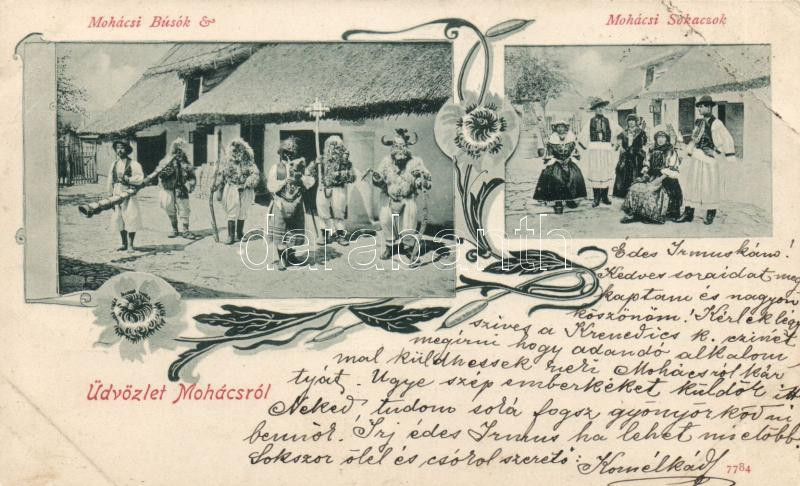 Mohácsi Búsók &
Mohácsi Sokaczok
darabanth
Édes Irmuskám!
Kedves soraidat meg
kaptam és nagyon
köszönöm! Kérlek légy
szives a Krenedics k. czimét
megirni hogy adandó alkalom
mal küldhessek neki Mohácsról kár
tyát. Ugye szép emberkéket küldök itt
Neked, tudom solá fogsz gyönyorködni
bennök. Irj édes Irmus ha lehet mielőbb.
Sokszor ölel és csókol szerető: Kornélkád
Üdvözlet Mohácsról
7784